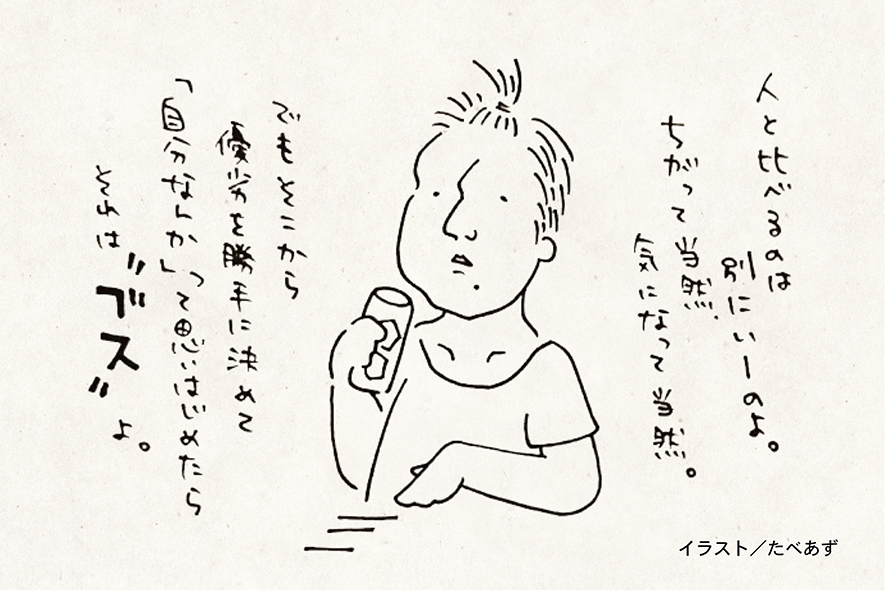 人と比べるのは
別にいーのよ。
ちがって当然.
気になって当然。
でもそこから
優劣を勝手に決めて
「自分なんか」って思いはじめたら
それは
"ブス"
よ。
イラスト／たべあず